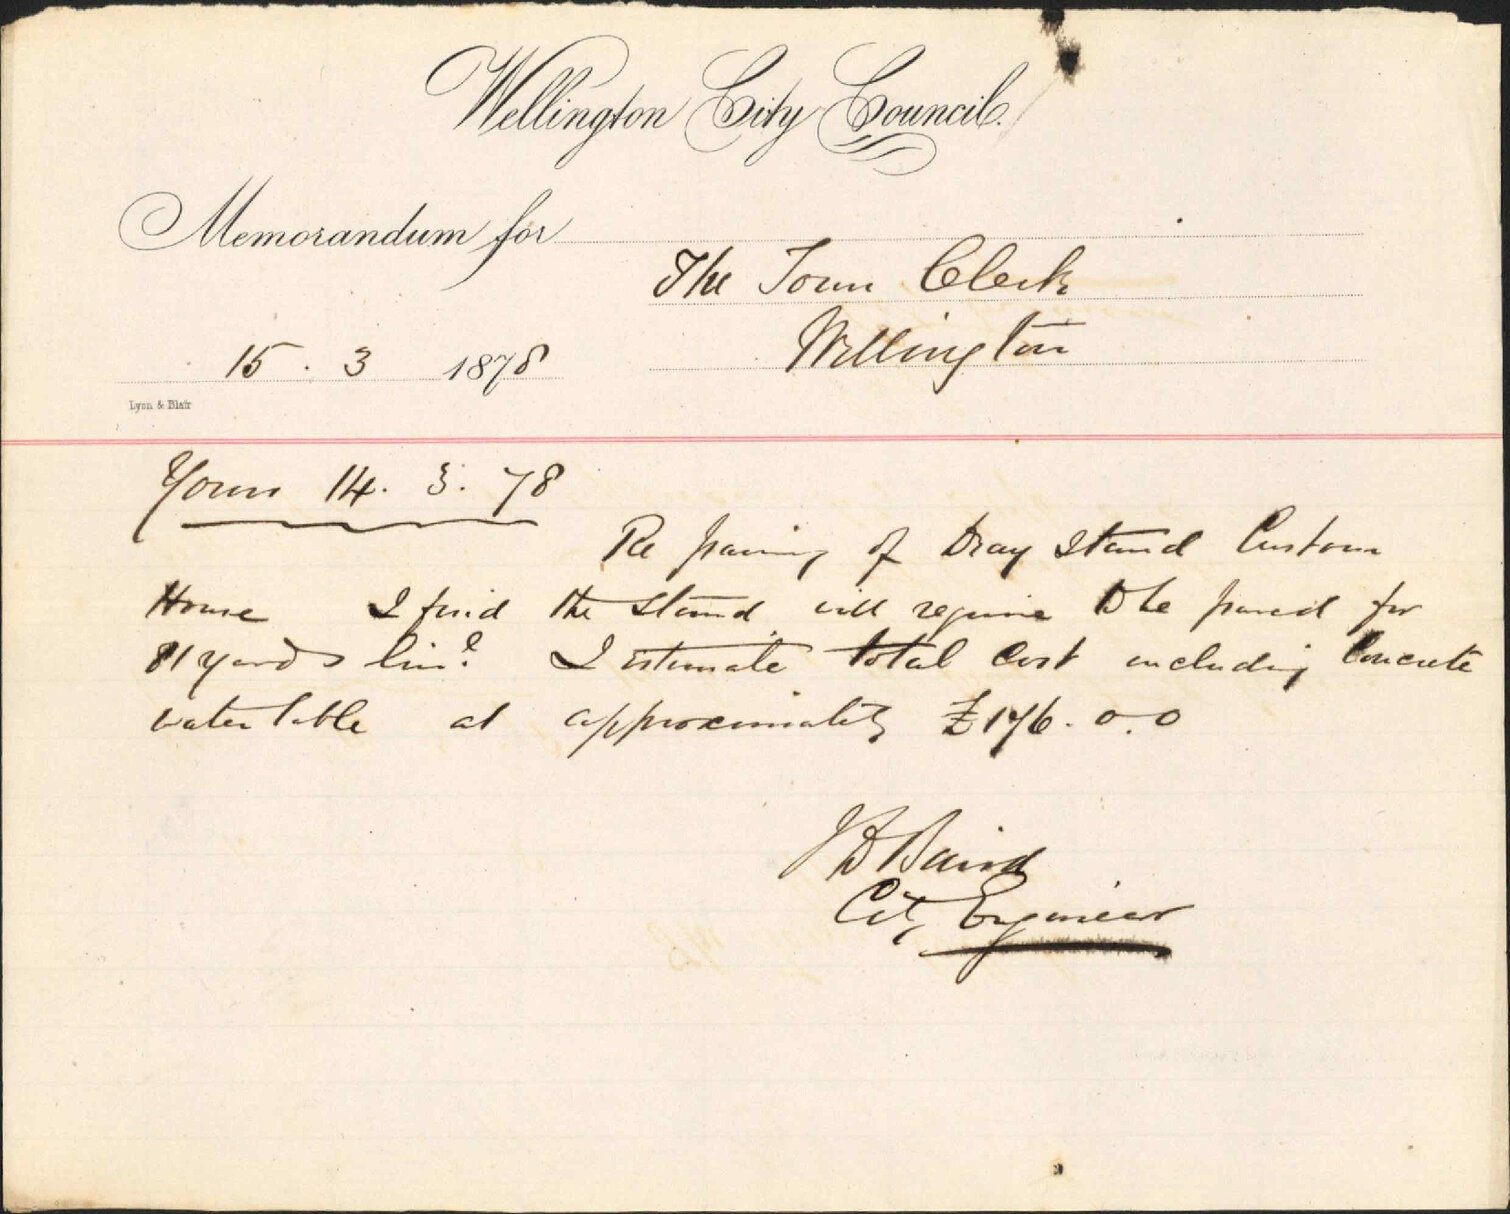 Wellington City Council.
Memorandum for
The Town Clerk
Wellington
15 . 3 1878
Lyon & Blair
Yours 14. 3. 78
Re paving of Dray Stand Custom
House I find the stand will require to be paved for
81 yards lin:l I estimate total cost including Concrete
water table at approximately £176. 0. 0
J D Baird
City Engineer